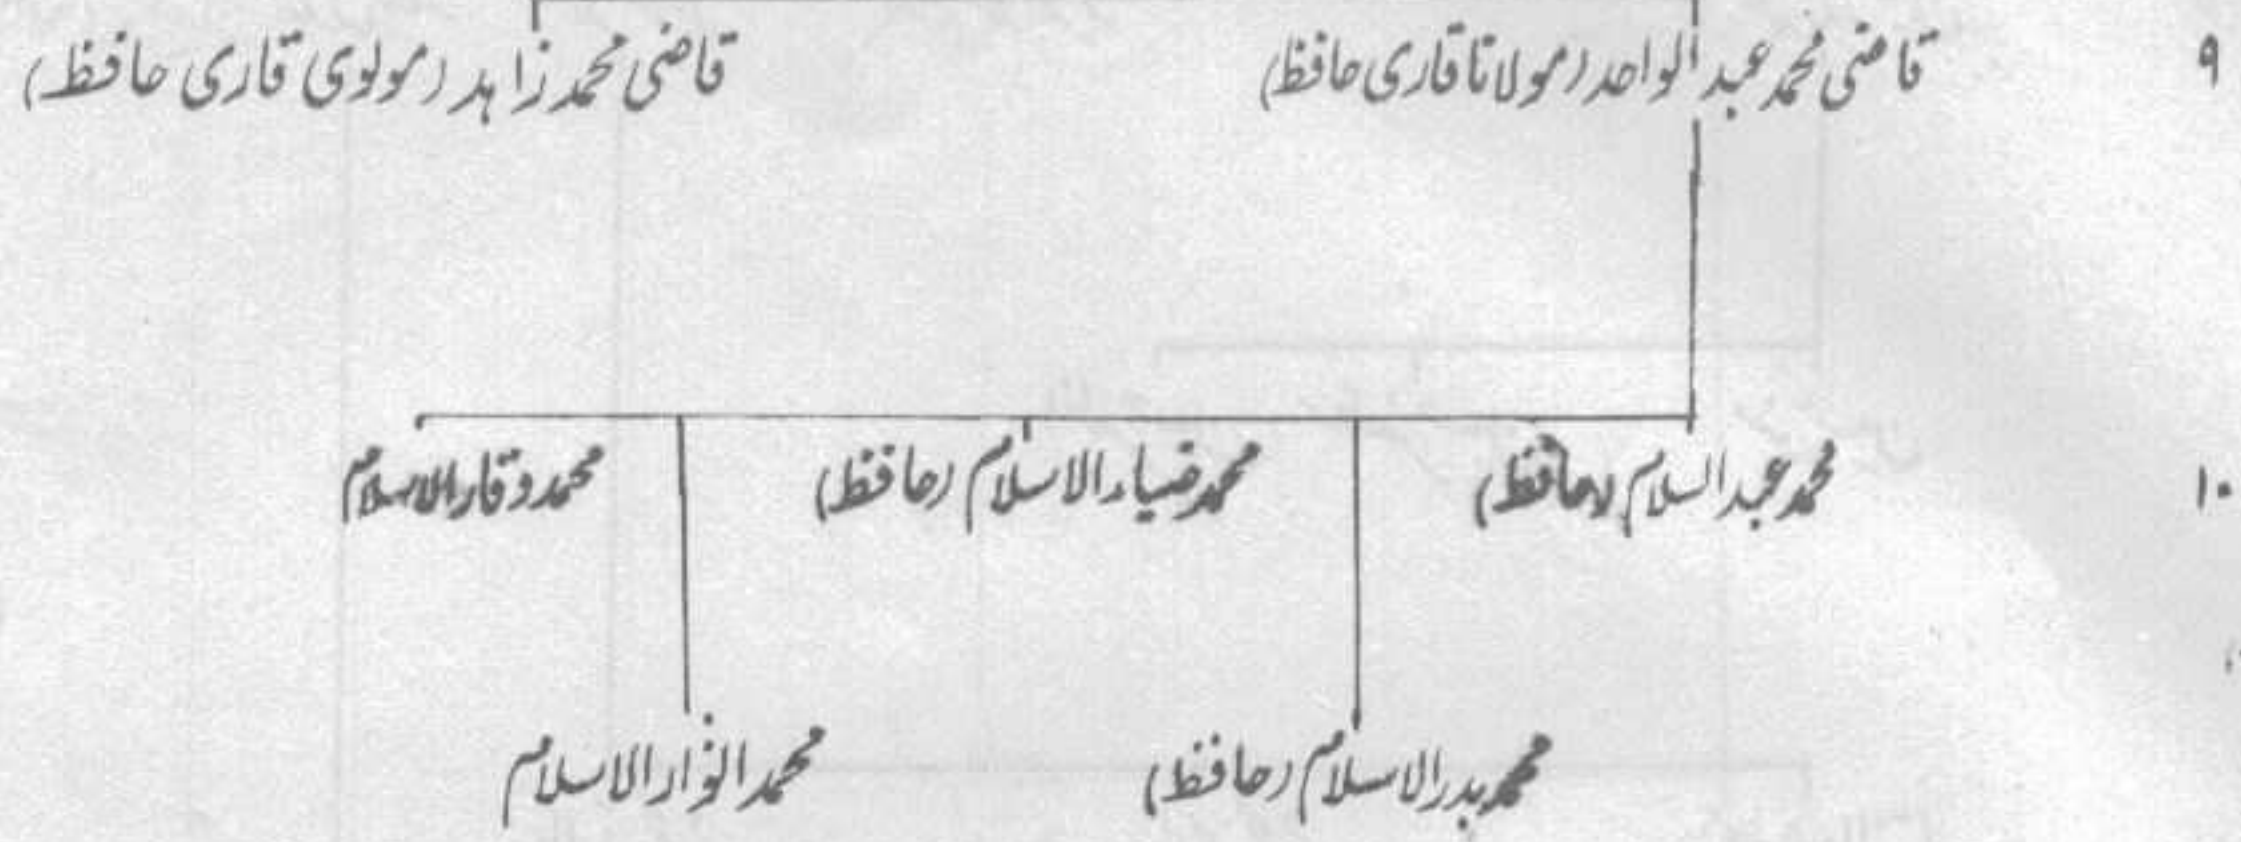 ۹ قاضی محمد عبد الواحد (مولانا قاری حافظ) قاضی محمد زاہد (مولوی قاری حافظ)
۱۰ محمد عبد السلام (حافظ) محمد ضیاء الاسلام (حافظ) محمد وقار الاسلام
محمد بدر الاسلام (حافظ) محمد انوار الاسلام